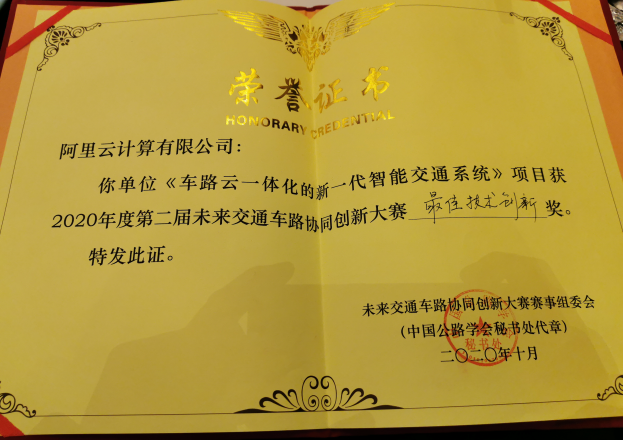 荣誉证书
HONORARY CREDENTIAL
阿里云计算有限公司：
你单位《车路云一体化的新一代智能交通系统》项目获
2020年度第二届未来交通车路协同创新大赛 最佳技术创新 奖。
特发此证。
未来交通车路协同创新大赛赛事组委会
（中国公路学会秘书处代章）
秘书处
二〇二〇年十月